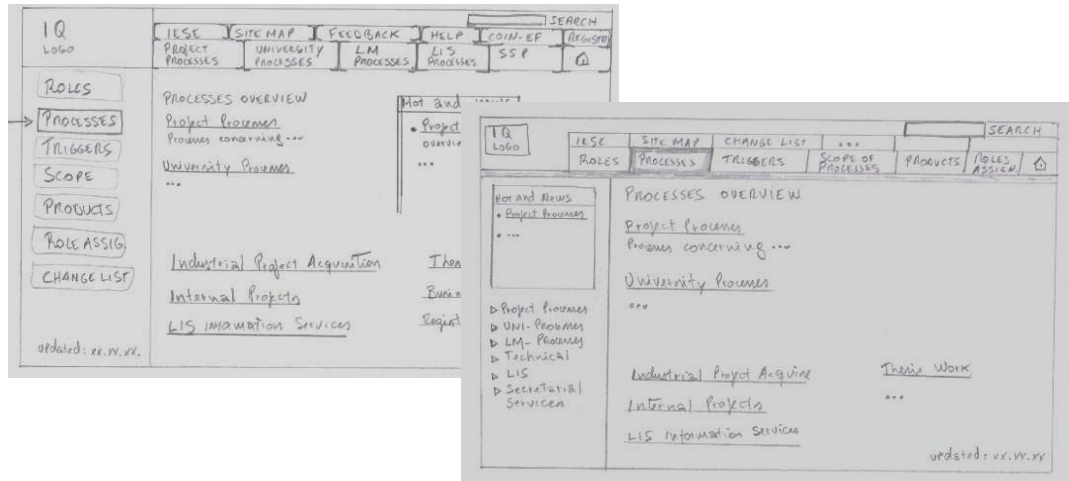 IQ
LOGO
SEARCH
IESE SITE MAP FEEDBACK HELP COIN-EF
PROJECT PROCESSES UNIVERSITY PROCESSES LM PROCESSES LIS PROCESSES SSP
ROLES
PROCESSES
TRIGGERS
SCOPE
PRODUCTS
ROLE ASSIG
CHANGE LIST
updated: xx.xx.xx.
PROCESSES OVERVIEW
Project Processes
Processes concerning ...
University Processes
...
Hot and
• Project
...
Industrial Project Acquisition
Internal Projects
LIS Information Services
IQ
LOGO
SEARCH
IESE SITE MAP CHANGE LIST ...
ROLES PROCESSES TRIGGERS SCOPE OF PROCESSES PRODUCTS ROLES ASSIGN.
Hot and News
• Project Processes
• ...
▷ Project Processes
▷ UNI-Processes
▷ LM-Processes
▷ Technical
▷ LIS
▷ Secretarial
Services
PROCESSES OVERVIEW
Project Processes
Processes concerning ...
University Processes
...
Industrial Project Acquire
Internal Projects
LIS Information Services
Thesis Work
...
updated: xx.xx.xx